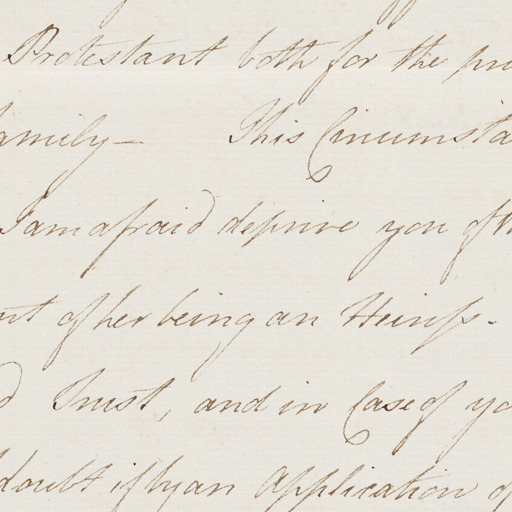 Protestant both for the pr
amily— This Circumsta
I am afraid deprive you of th
nt of her being an Heiress.
d Trust, and in Case of yo
doubt if by an Application of